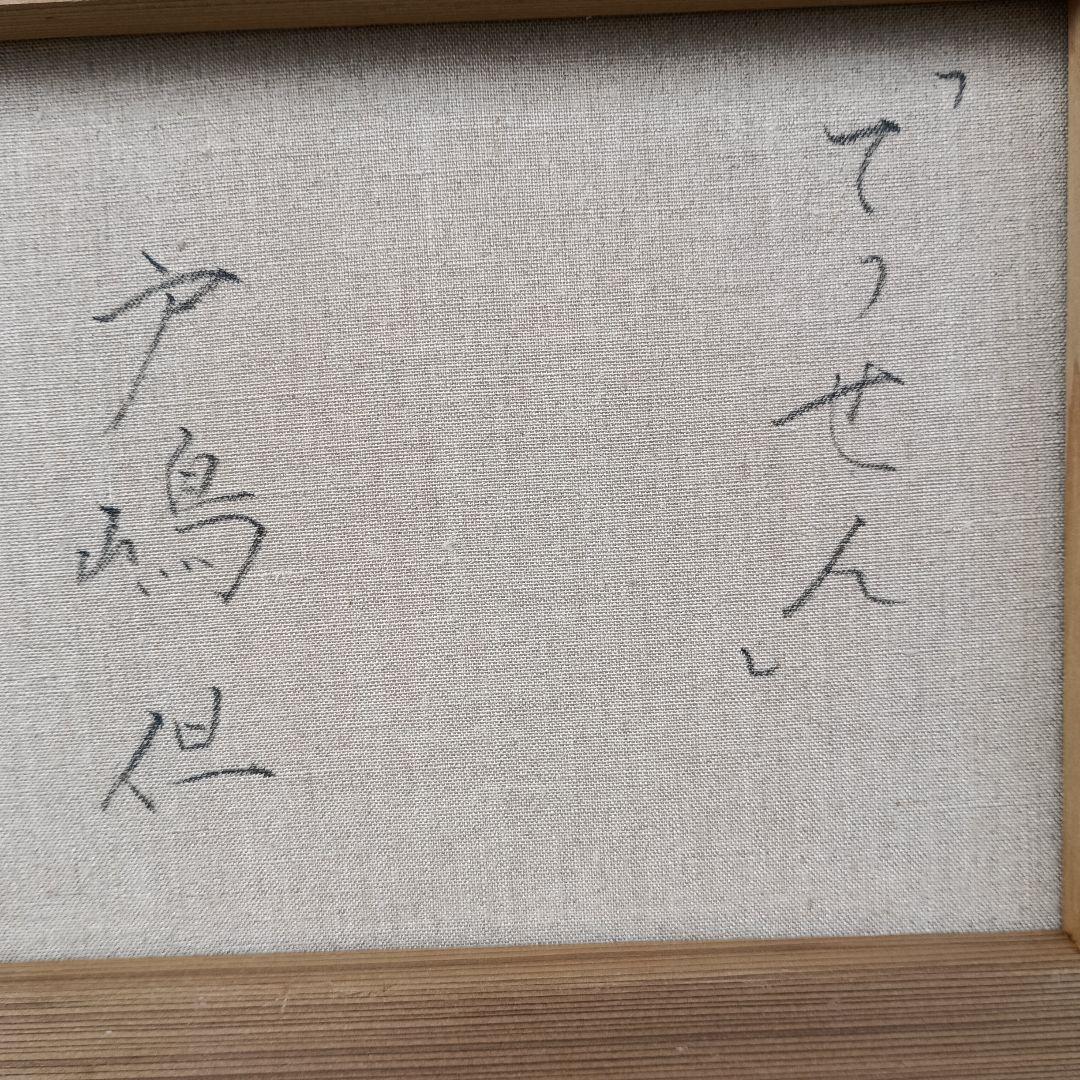 「てっせん」
戸嶋但